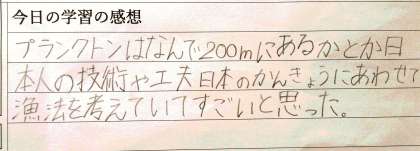 今日の学習の感想
プランクトンはなんで200mにあるかとか日
本人の技術や工夫日本のかんきょうにあわせて
漁法を考えていてすごいと思った。